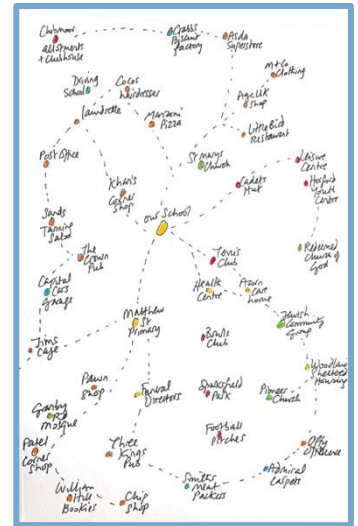 Clubmoor
allotments
+ clubhouse
Crabbs
Biscuit
factory
Asda
Superstore
M+Co
Clothing
Driving
School
Cocos
hairdresses
Shop
Laundrette
Manzoni
Pizza
Little Bird
Restaurant
Post Office
St Marys
Church
Leisure
Centre
Khan's
Corner
Shop
Cadets
Hut
Youth
Centre
Our School
Sands
Tanning
Salon
The
Crown
Pub
Tennis
Club
Redeemed
Church of
God
Capital
Cars
Garage
Health
Centre
Acorn
Care
home
Matthew
St
Primary
Jewish
Community
Group
Jims
Cafe
Bowls
Club
Woodland
Sheltered
Housing
Pawn
Shop
Funeral
Directors
Park
Pioneer
Church
Granby
Rd
Mosque
Football
Pitches
Patel
Corner
Shop
Three
Kings
Pub
Offy
Offlicence
Smiths
Meat
Packers
Admiral
Carpets
William
Hill
Bookies
Chip
Shop